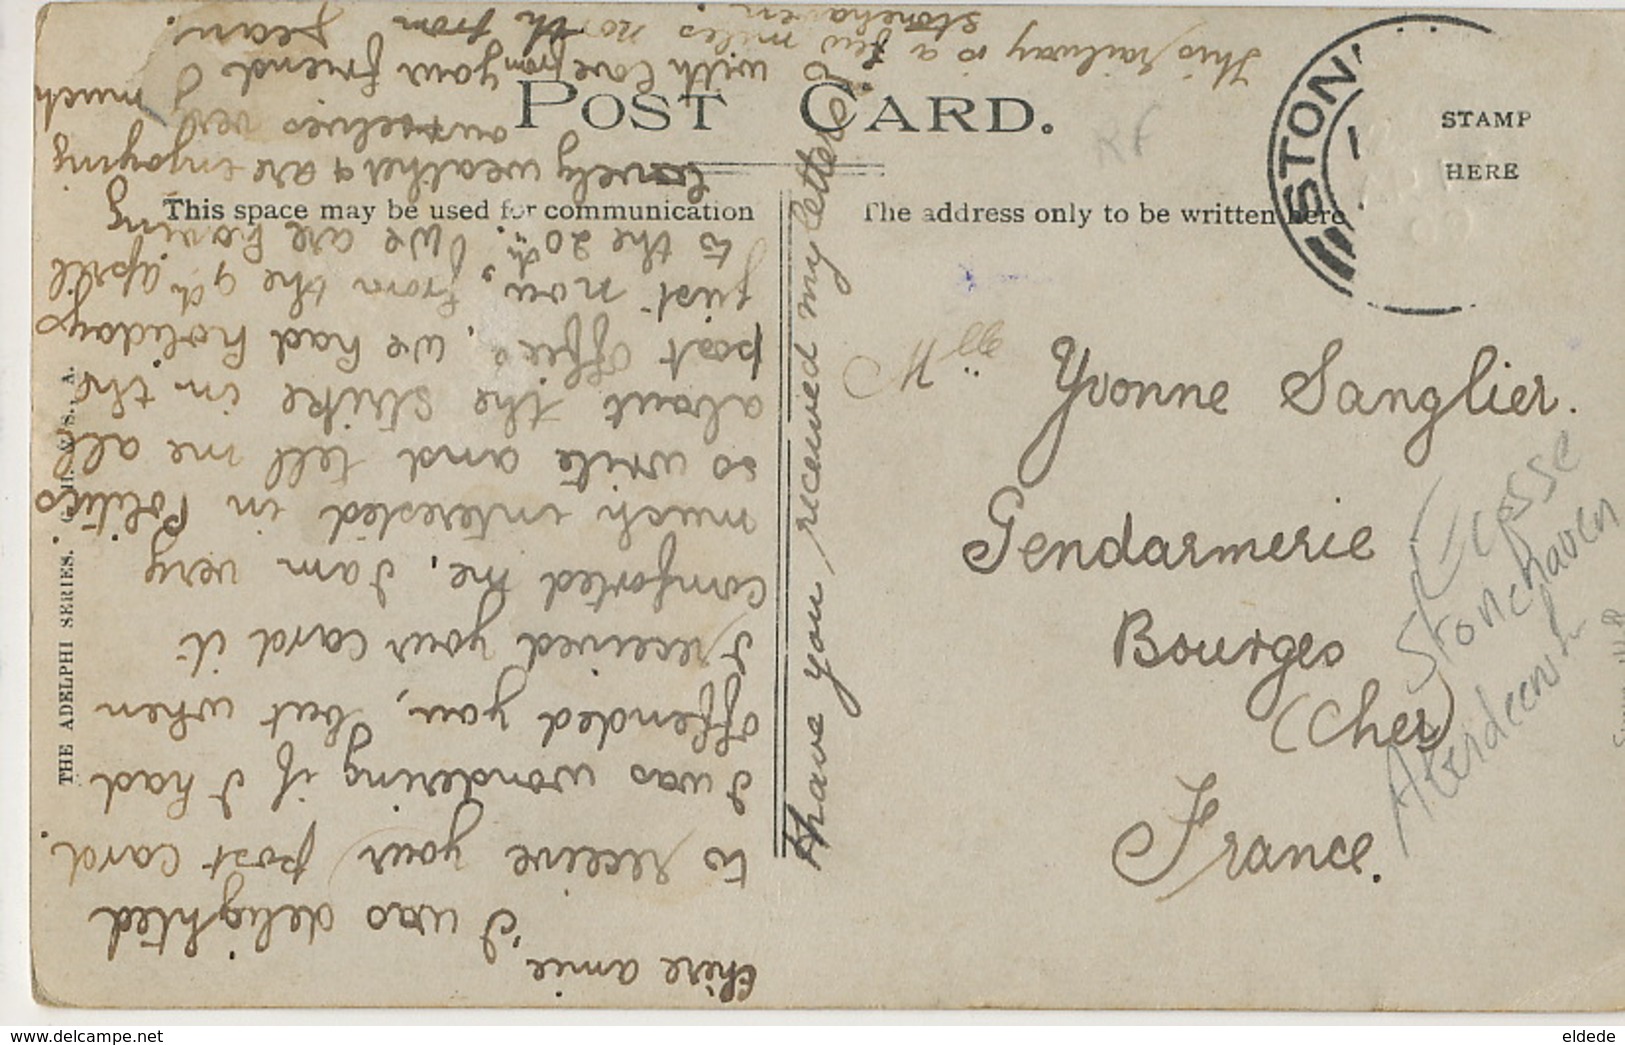 POST CARD.
STAMP
HERE
This space may be used for communication
The address only to be written here
STON
Mlle Yvonne Sanglier.
Gendarmerie
Bourges
(Cher)
France.
Ecosse
Stonehaven
THE ADELPHI SERIES.
chère amie,
I was delighted
to receive your post card.
I was wondering if I had
offended you, but when
I received your card it
comforted me, I am very
much interested in Politics
so write and tell me all
about the strike in the
post office, we had holidays
just now, from the 9th april
to the 20th. We are having
lovely weather & are enjoying
ourselves very much
with love from your friend
Jean.
This railway is a few miles north from
Stonehaven.
Have you received my letter?
eldede